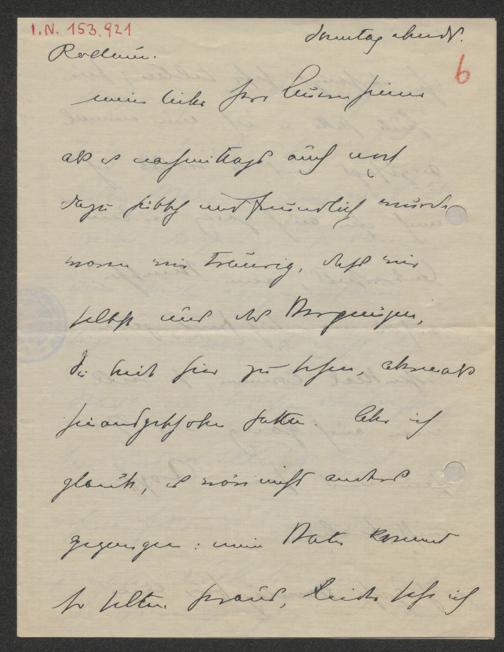 I.N. 153.921
Sonntag abend.
6
Rodaun.
mein lieber Herr
als es nachmittags auch noch
dazu hübsch und freundlich wurde
waren wir traurig, daß wir
selbst uns das Vergnügen,
Sie heut hier zu sehen,
hinausgeschoben hatten. Aber ich
glaube, es wäre nicht anders
gegangen: mein Vater kommt
so selten heraus, leider sehe ich